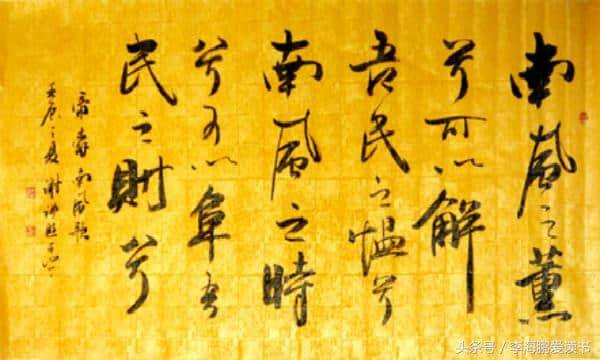 南風之薰
兮可以解
吾民之愠兮
南風之時
兮可以阜吾
民之財兮
舜南風歌
壬辰之夏謝
头条号／李海鹏爱读书